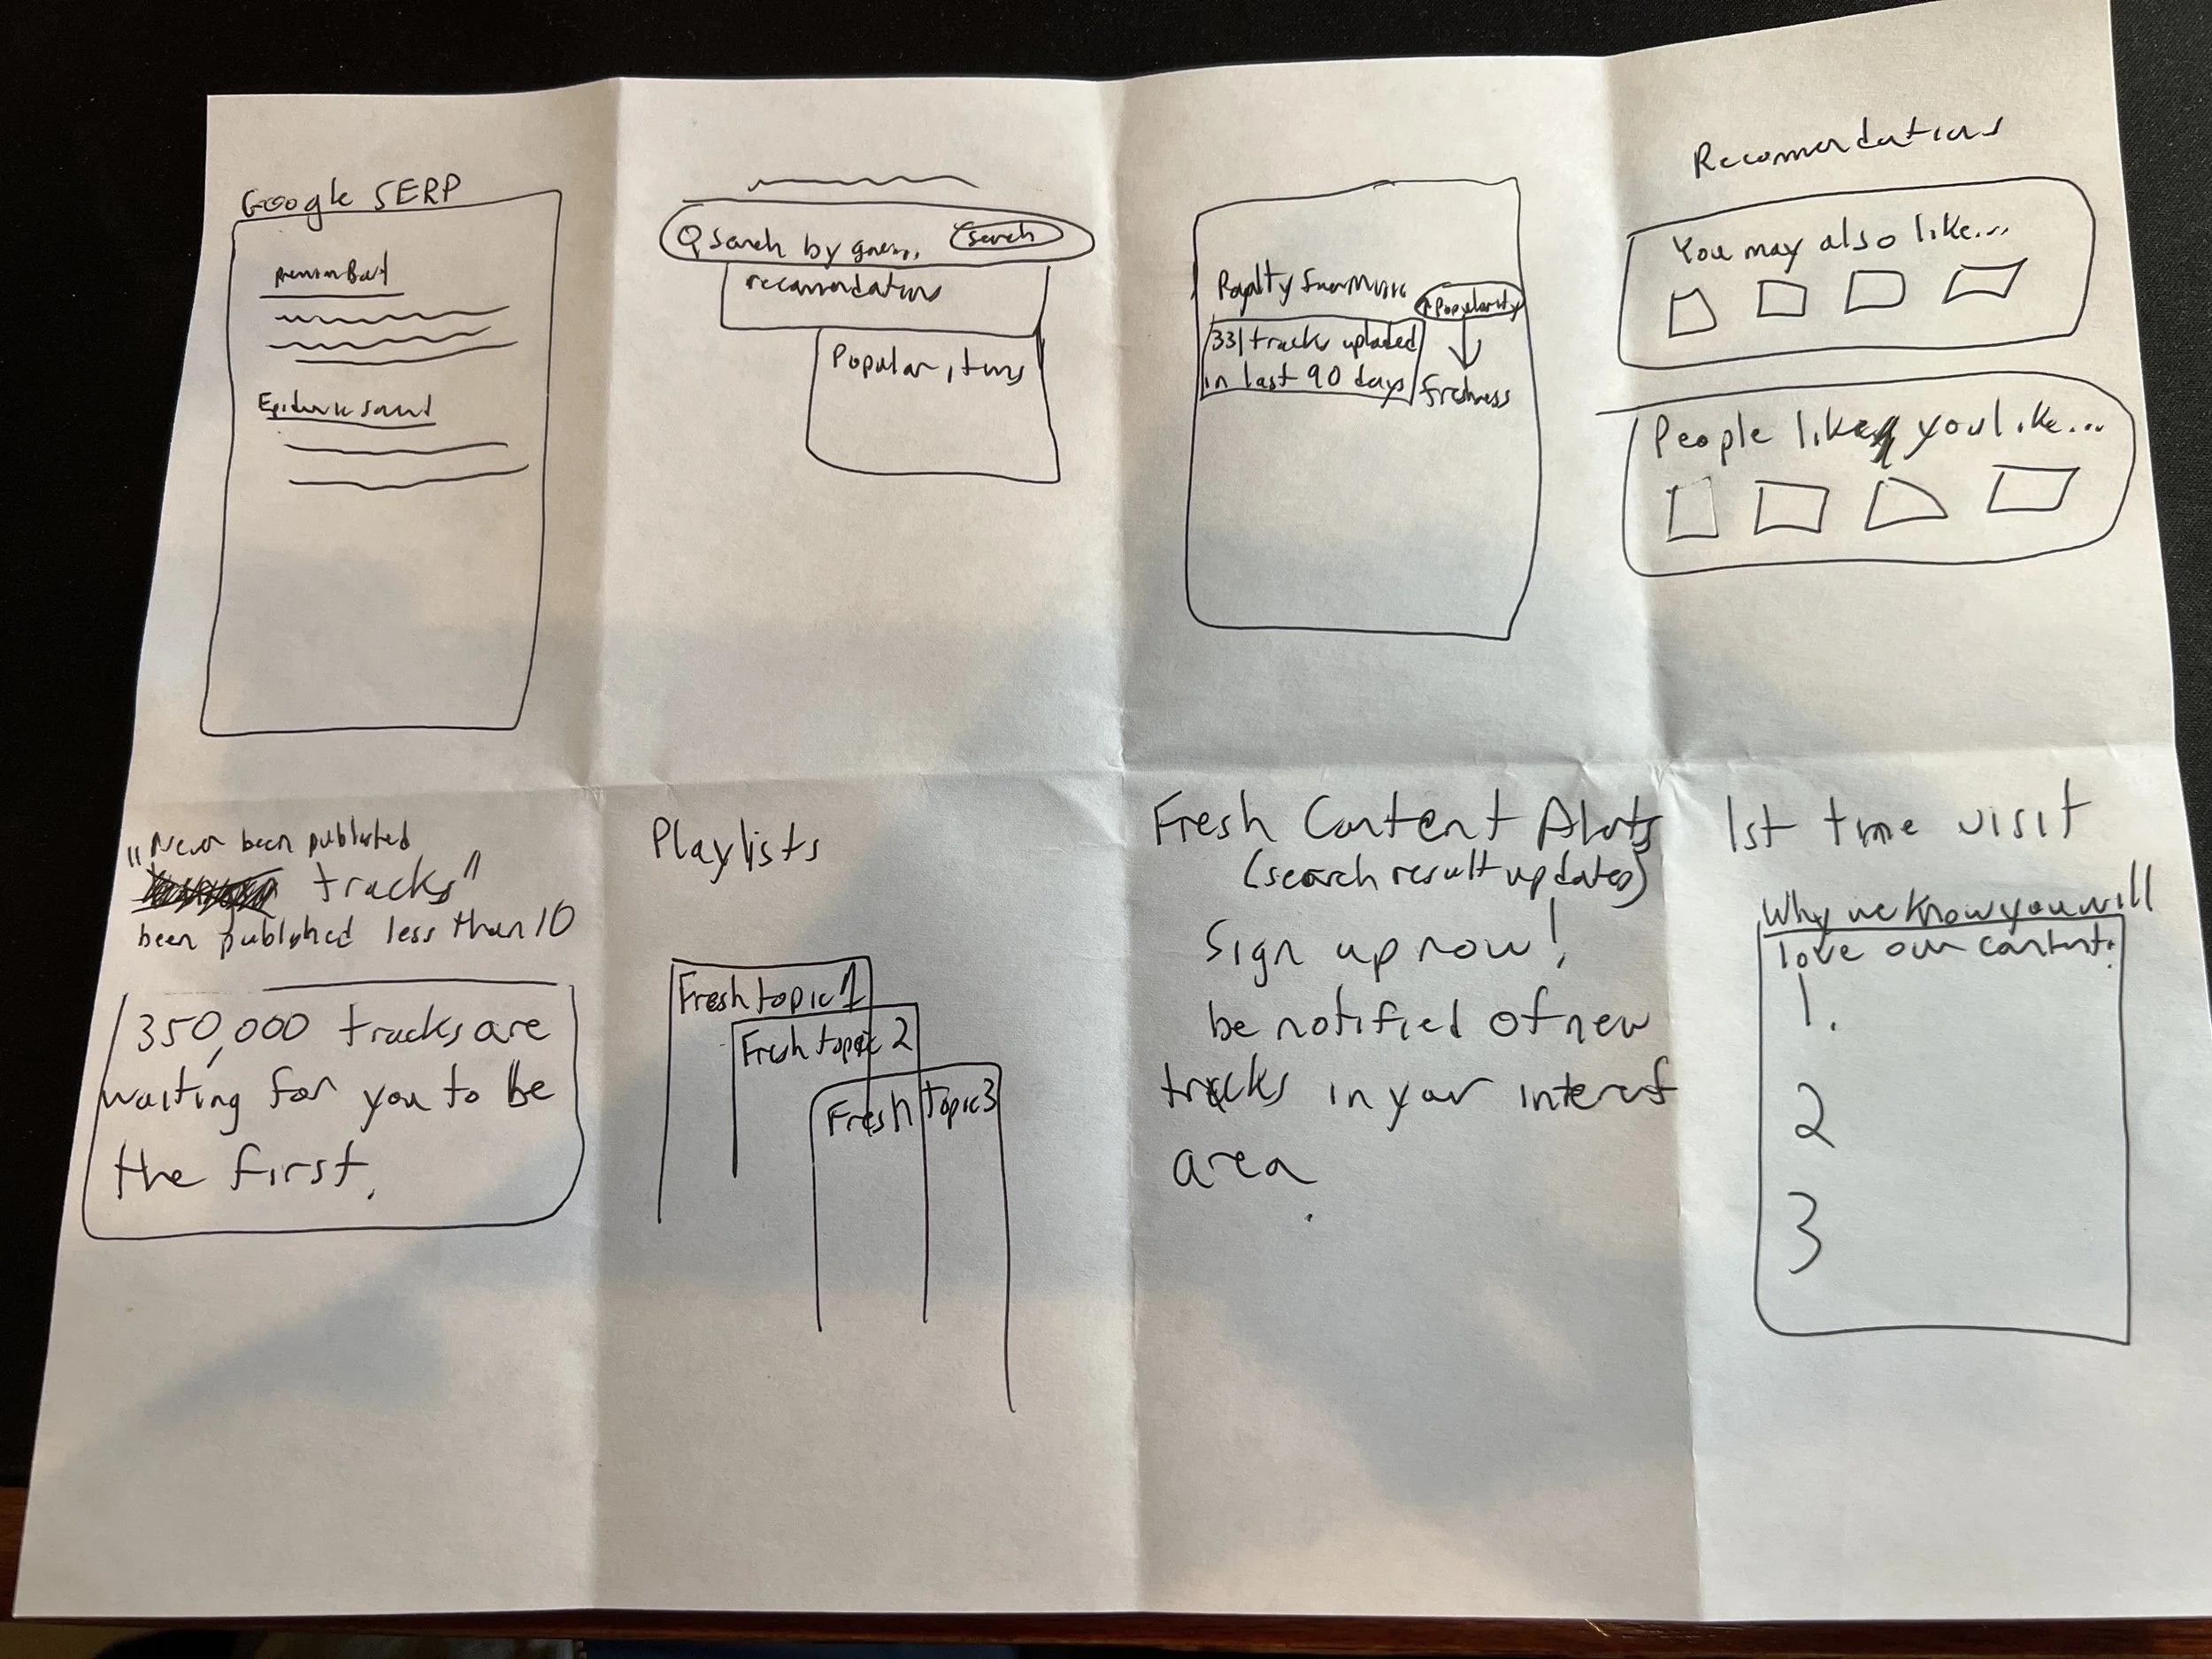 Google SERP
Premium Beat
Epidemic Sound
Search by genre,
Search
recomendations
Popular items
Royalty Free Music
Popularity
331 tracks uploaded
in last 90 days
freshness
Recomendations
You may also like...
People like you like...
"Never been published
tracks"
been published less than 10
350,000 tracks are
waiting for you to be
the first.
Playlists
Fresh topic 1
Fresh topic 2
Fresh topic 3
Fresh Content Alerts
(search result updates)
Sign up now!
be notified of new
tracks in your interest
area
1st time visit
Why we know you will
love our content:
1.
2
3